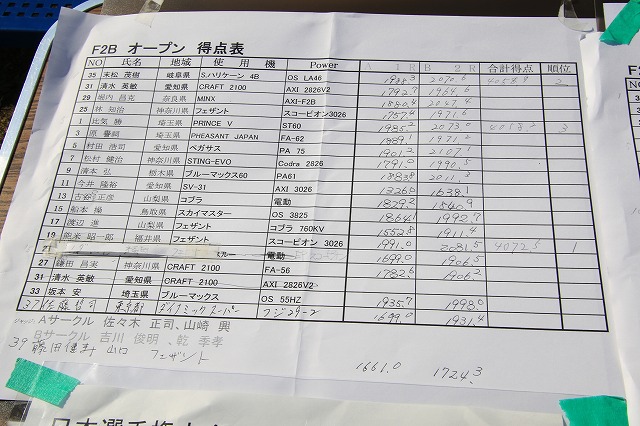 F2B オープン 得点表
NO 氏名 地域 使用機 Power A 1R B 2R 合計得点 順位
35 末松 茂樹 岐阜県 S.ハリケーン 4B OS LA46 2070.6 2
31 清水 英敏 愛知県 CRAFT 2100 AXI 2826V2 1792.7 1964.6
29 堀内 昌克 奈良県 MINX AXI-F2B 1880.4 2047.4
25 林 知治 神奈川県 フェザント スコーピオン3026 1757.4 1971.6
1 比気 勝 埼玉県 PRINCE V ST60 1985.2 2073.0 3
3 原 誉嗣 埼玉県 PHEASANT JAPAN FA-62 1889.1 1971.2
5 村田 浩司 愛知県 ペガサス PA 75 1901.2 2107.1
7 松村 健治 神奈川県 STING-EVO Codra 2826 1791.0 1990.5
9 清本 弘 栃木県 ブルーマックス60 PA61 1838.8 2011.3
11 今井 隆裕 愛知県 SV-31 AXI 3026 1326.0 1638.1
13 古谷 正彦 山梨県 コブラ 電動 1829.2 1540.9
15 船本 操 鳥取県 スカイマスター OS 3825 1864.1 1992.7
17 渡辺 進 山梨県 フェザント コブラ 760KV 1552.8 1911.4
19 能米 昭一郎 福井県 フェザント スコーピオン 3026 1991.0 2081.5 4072.5 1
電動 1699.0 1906.5
27 鎌田 昌実 神奈川県 CRAFT 2100 FA-56 1782.6 1906.2
31 清水 英敏 愛知県 CRAFT 2100 AXI 2826V2
33 坂本 安 埼玉県 ブルーマックス OS 55HZ 1935.7 1998.0
37 佐藤 哲司 東京都 ダイナミック スーパー フジ29-2 1699.0 1931.4
ジャッジ Aサークル 佐々木 正司、山崎 興
Bサークル 吉川 俊明 、乾 季孝
39 藤田 山口 フェザント 1661.0 1724.3